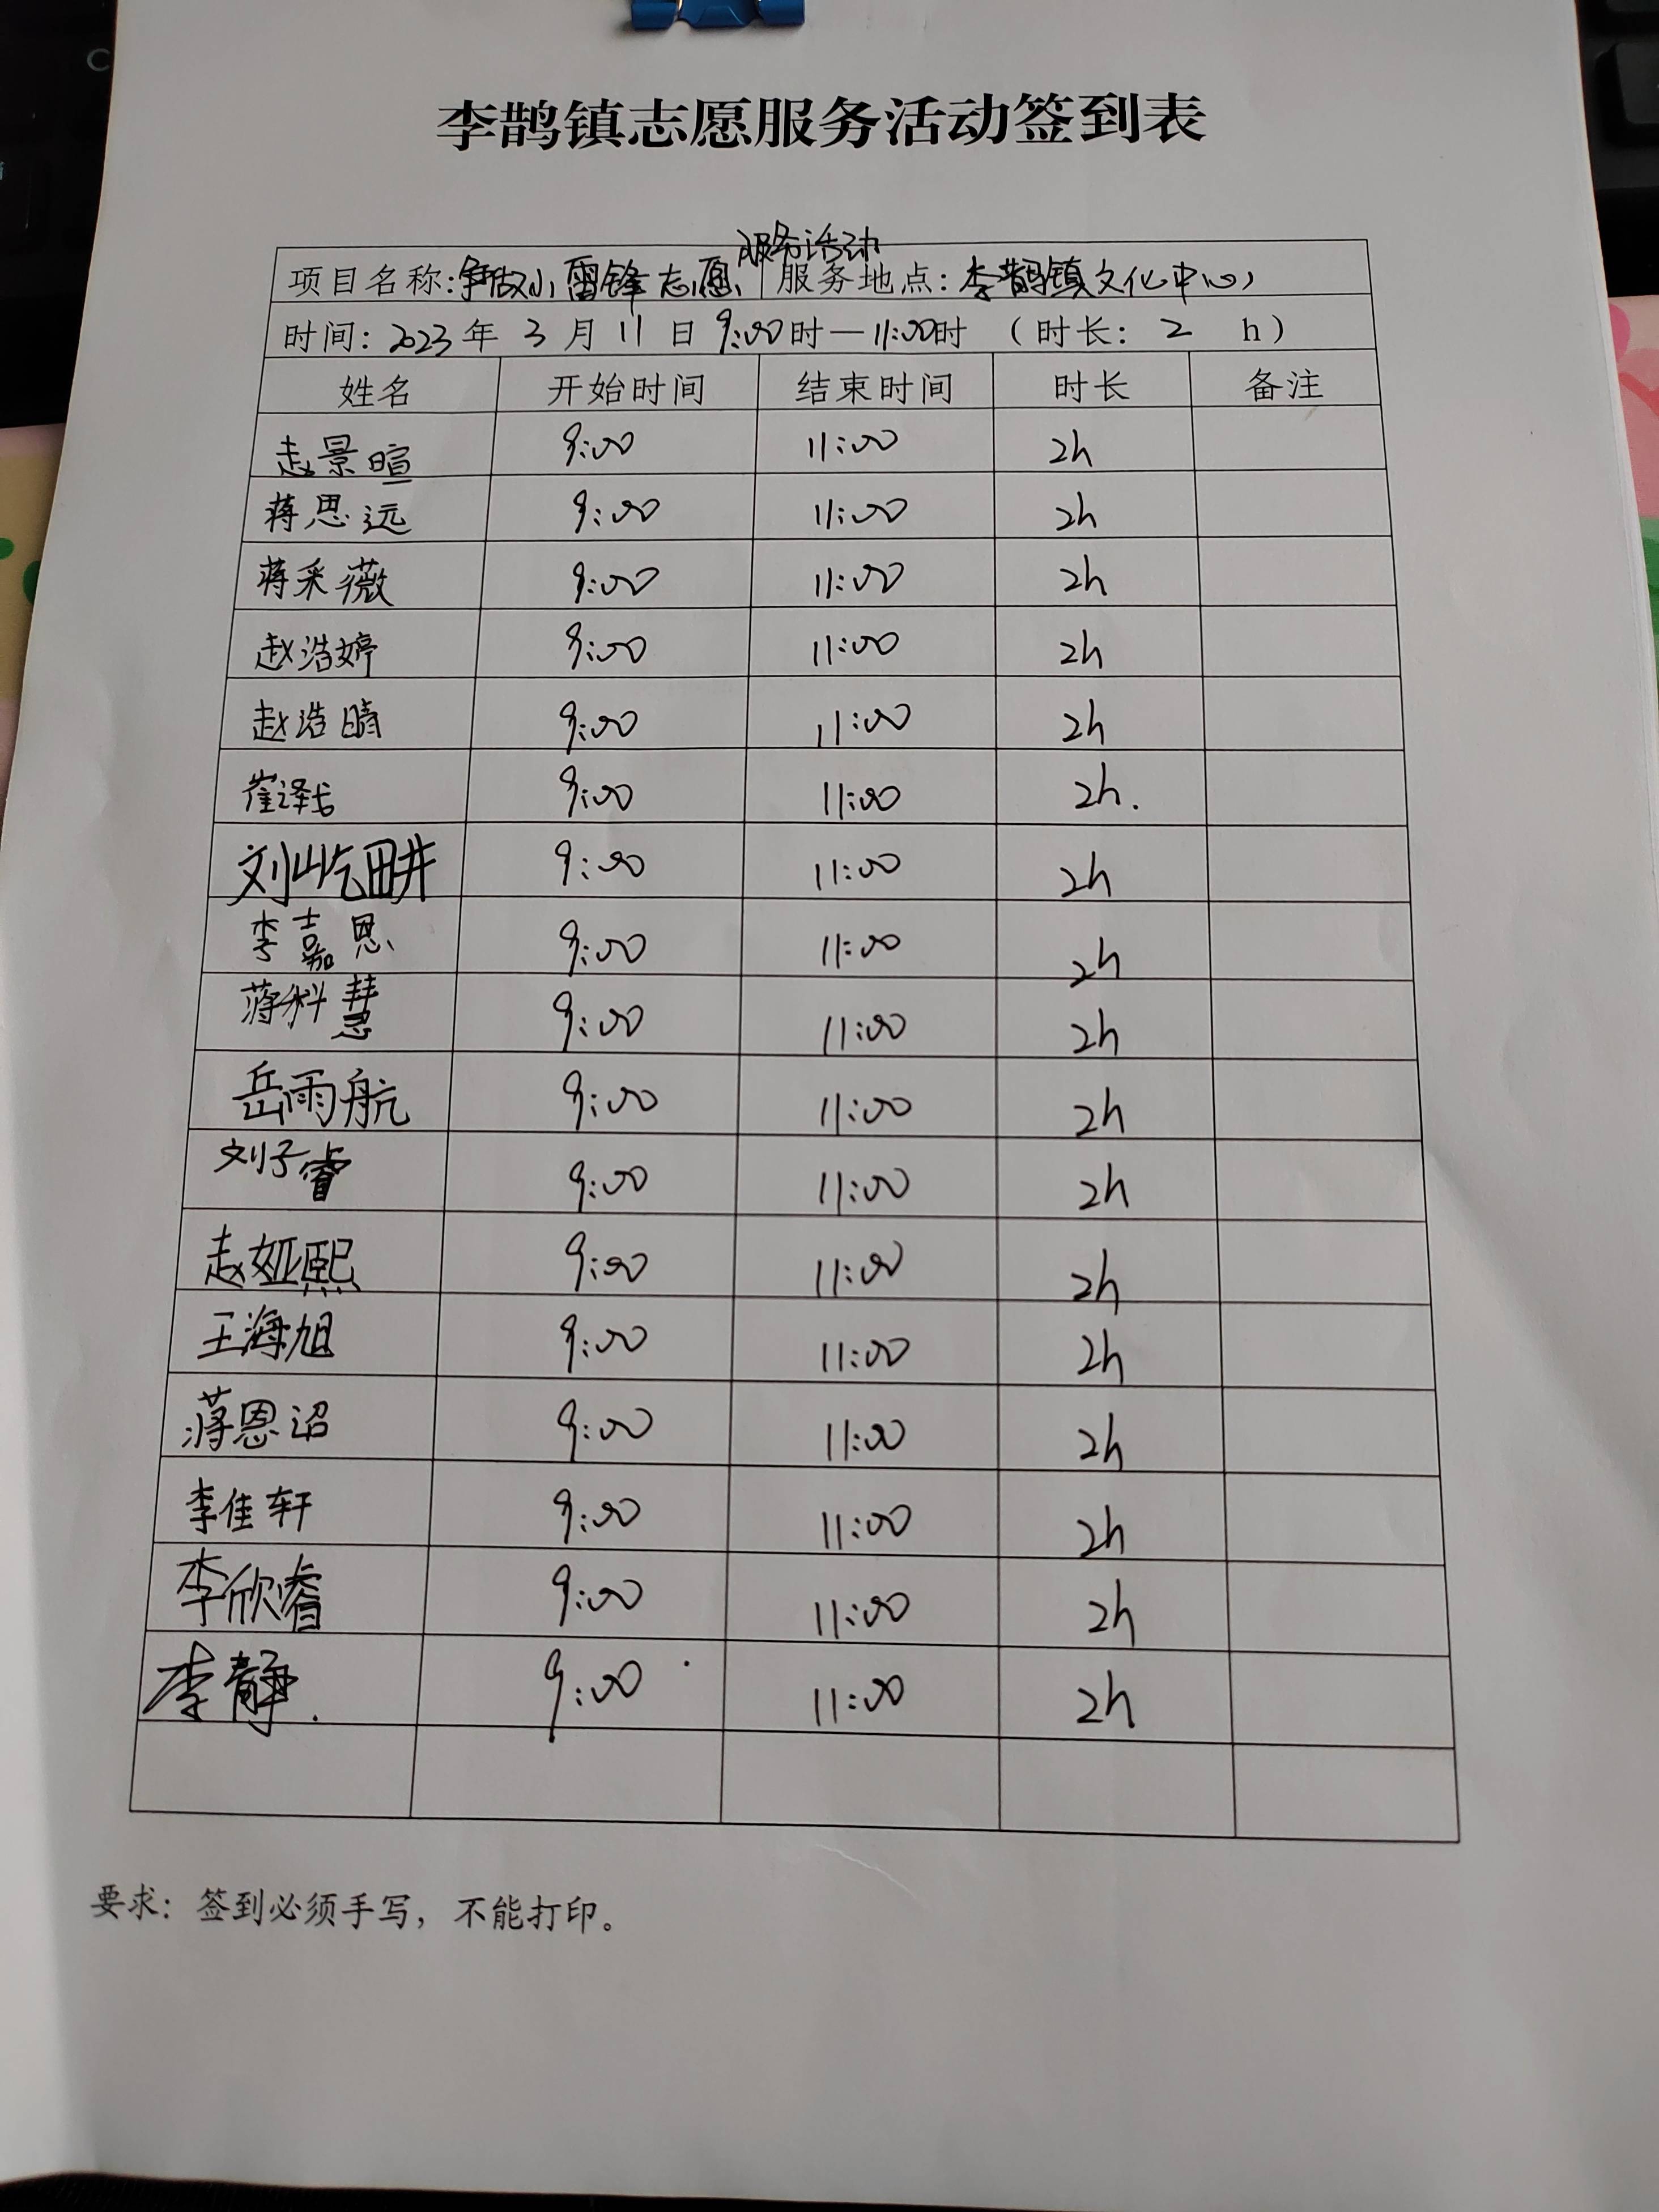 李鹊镇志愿服务活动签到表
服务活动
项目名称:争做小雷锋志愿 服务地点:李鹊镇文化中心
时间:2023年3月11日9:00时—11:00时(时长:2 h)
姓名 开始时间 结束时间 时长 备注
赵景暄 9:00 11:00 2h
蒋思远 9:00 11:00 2h
蒋采薇 9:00 11:00 2h
赵浩婷 9:00 11:00 2h
赵浩晴 9:00 11:00 2h
崔译 9:00 11:00 2h.
刘屹畊 9:00 11:00 2h
李嘉恩 9:00 11:00 2h
蒋科慧 9:00 11:00 2h
岳雨航 9:00 11:00 2h
刘子睿 9:00 11:00 2h
赵娅熙 9:00 11:00 2h
王海旭 9:00 11:00 2h
蒋恩迢 9:00 11:00 2h
李佳轩 9:00 11:00 2h
李欣睿 9:00 11:00 2h
李静. 9:00 11:00 2h
要求:签到必须手写,不能打印。